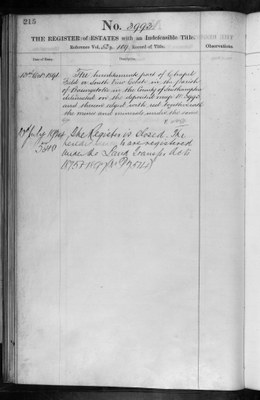 215
No. 3993
THE REGISTER of ESTATES with an Indefeasible Title.
Reference Vol. 529. 189, Record of Title.
Observations.
Date of Entry.
Description.
The hereditaments part of Chapel
Field or South View Estate in the Parish
of Basingstoke in the County of Southampton
delineated on the deposited map No. 3993
and thereon edged with red together with
the mines and minerals under the same
July 1924 The Register is closed. The
are registered
under the Land Transfer Acts
1875 & 1897